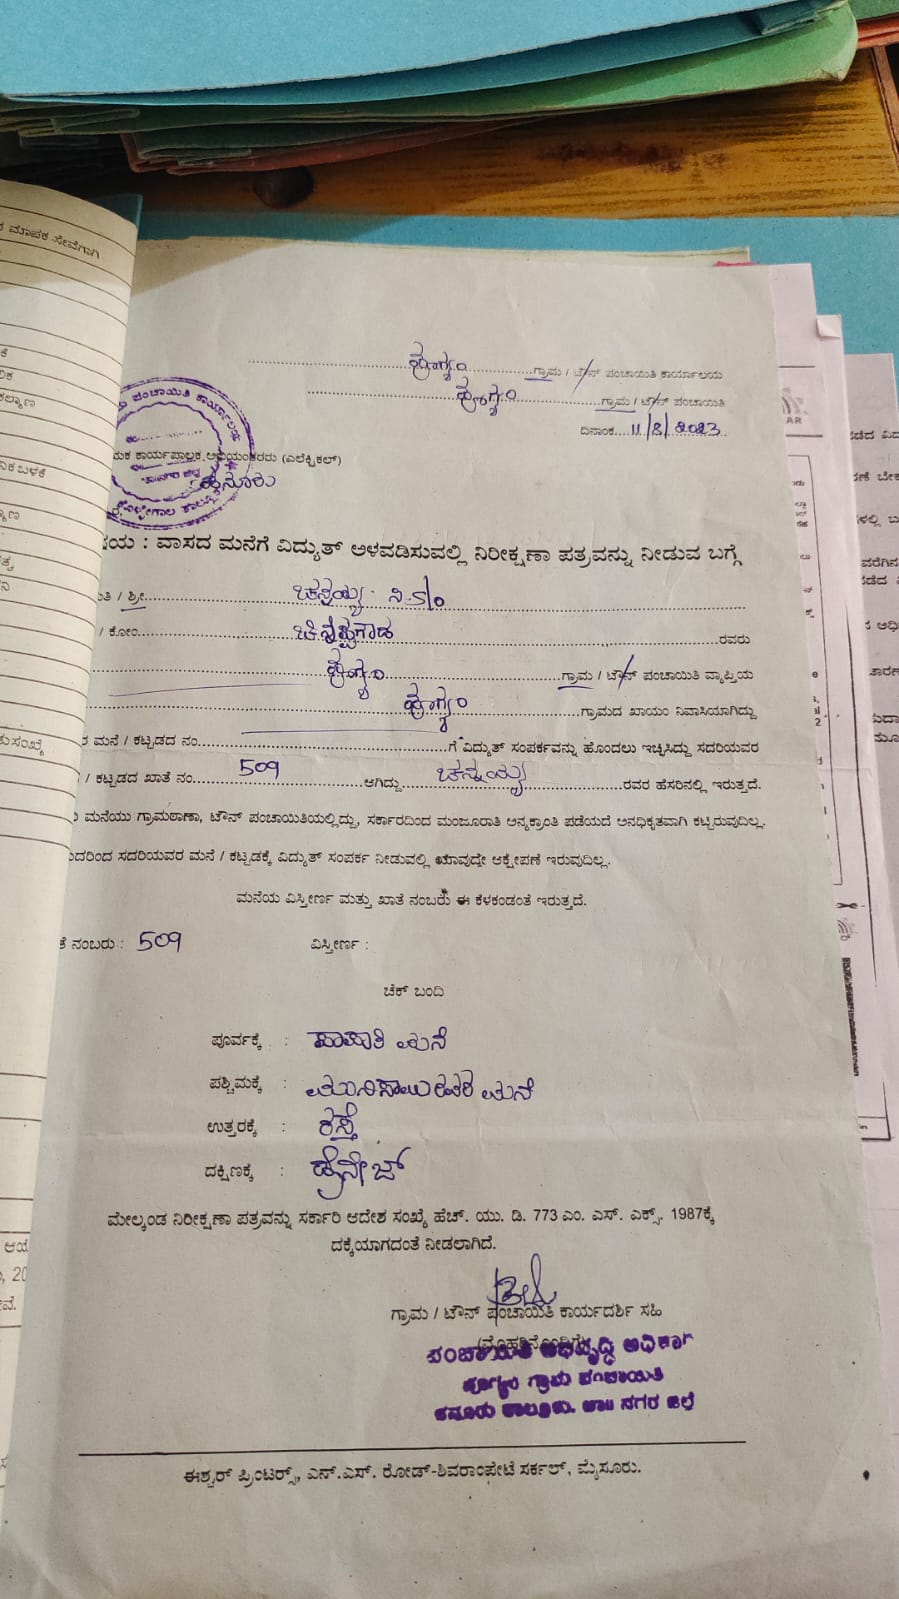 ಮಾಪಕ ಸೇವೆಗಾಗಿ
ಗ್ರಾಮ / ಟೌನ್ ಪಂಚಾಯಿತಿ ಕಾರ್ಯಾಲಯ
ಗ್ರಾಮ / ಟೌನ್ ಪಂಚಾಯಿತಿ
ದಿನಾಂಕ 11/8/2023
ಪಂಚಾಯಿತಿ ಕಾರ್ಯಾಲಯ
ಕಾರ್ಯಪಾಲಕ ಅಭಿಯಂತರರು (ಎಲೆಕ್ಟ್ರಿಕಲ್)
ಹನೂರು
ಕೊಳ್ಳೇಗಾಲ ತಾಲ್ಲೂಕು
: ವಾಸದ ಮನೆಗೆ ವಿದ್ಯುತ್ ಅಳವಡಿಸುವಲ್ಲಿ ನಿರೀಕ್ಷಣಾ ಪತ್ರವನ್ನು ನೀಡುವ ಬಗ್ಗೆ
/ ಶ್ರೀ ಚನ್ನಯ್ಯ ಸಿ S/o
/ ಕೋಂ ರವರು
ಗ್ರಾಮ / ಟೌನ್ ಪಂಚಾಯಿತಿ ವ್ಯಾಪ್ತಿಯ
ಗ್ರಾಮದ ಖಾಯಂ ನಿವಾಸಿಯಾಗಿದ್ದು
ಮನೆ / ಕಟ್ಟಡದ ನಂ ಗೆ ವಿದ್ಯುತ್ ಸಂಪರ್ಕವನ್ನು ಹೊಂದಲು ಇಚ್ಛಿಸಿದ್ದು ಸದರಿಯವರ
/ ಕಟ್ಟಡದ ಖಾತೆ ನಂ 509 ಆಗಿದ್ದು ಚನ್ನಯ್ಯ ರವರ ಹೆಸರಿನಲ್ಲಿ ಇರುತ್ತದೆ.
ಮನೆಯು ಗ್ರಾಮಠಾಣಾ, ಟೌನ್ ಪಂಚಾಯಿತಿಯಲ್ಲಿದ್ದು, ಸರ್ಕಾರದಿಂದ ಮಂಜೂರಾತಿ ಅನ್ಯಕ್ರಾಂತಿ ಪಡೆಯದೆ ಅನಧಿಕೃತವಾಗಿ ಕಟ್ಟಿರುವುದಿಲ್ಲ.
ಸದರಿಯವರ ಮನೆ / ಕಟ್ಟಡಕ್ಕೆ ವಿದ್ಯುತ್ ಸಂಪರ್ಕ ನೀಡುವಲ್ಲಿ ಯಾವುದೇ ಆಕ್ಷೇಪಣೆ ಇರುವುದಿಲ್ಲ.
ಮನೆಯ ವಿಸ್ತೀರ್ಣ ಮತ್ತು ಖಾತೆ ನಂಬರು ಈ ಕೆಳಕಂಡಂತೆ ಇರುತ್ತದೆ.
ನಂಬರು : 509 ವಿಸ್ತೀರ್ಣ :
ಚೆಕ್ ಬಂದಿ
ಪೂರ್ವಕ್ಕೆ : ಮನೆ
ಪಶ್ಚಿಮಕ್ಕೆ : ಮುನಿಸಾಮಿರವರ ಮನೆ
ಉತ್ತರಕ್ಕೆ : ರಸ್ತೆ
ದಕ್ಷಿಣಕ್ಕೆ : ಡ್ರೈನೇಜ್
ಮೇಲ್ಕಂಡ ನಿರೀಕ್ಷಣಾ ಪತ್ರವನ್ನು ಸರ್ಕಾರಿ ಆದೇಶ ಸಂಖ್ಯೆ ಹೆಚ್. ಯು. ಡಿ. 773 ಎಂ. ಎಸ್. ಎಕ್ಸ್. 1987ಕ್ಕೆ
ದಕ್ಕೆಯಾಗದಂತೆ ನೀಡಲಾಗಿದೆ.
ಗ್ರಾಮ / ಟೌನ್ ಪಂಚಾಯಿತಿ ಕಾರ್ಯದರ್ಶಿ ಸಹಿ
(ಮೊಹರಿನೊಂದಿಗೆ)
ಪಂಚಾಯಿತಿ ಅಭಿವೃದ್ಧಿ ಅಧಿಕಾರಿ
ಗ್ರಾಮ ಪಂಚಾಯಿತಿ
ಹನೂರು ತಾಲ್ಲೂಕು. ಚಾಮರಾಜನಗರ ಜಿಲ್ಲೆ
ಈಶ್ವರ್ ಪ್ರಿಂಟರ್ಸ್, ಎನ್.ಎಸ್. ರೋಡ್-ಶಿವರಾಂಪೇಟೆ ಸರ್ಕಲ್, ಮೈಸೂರು.